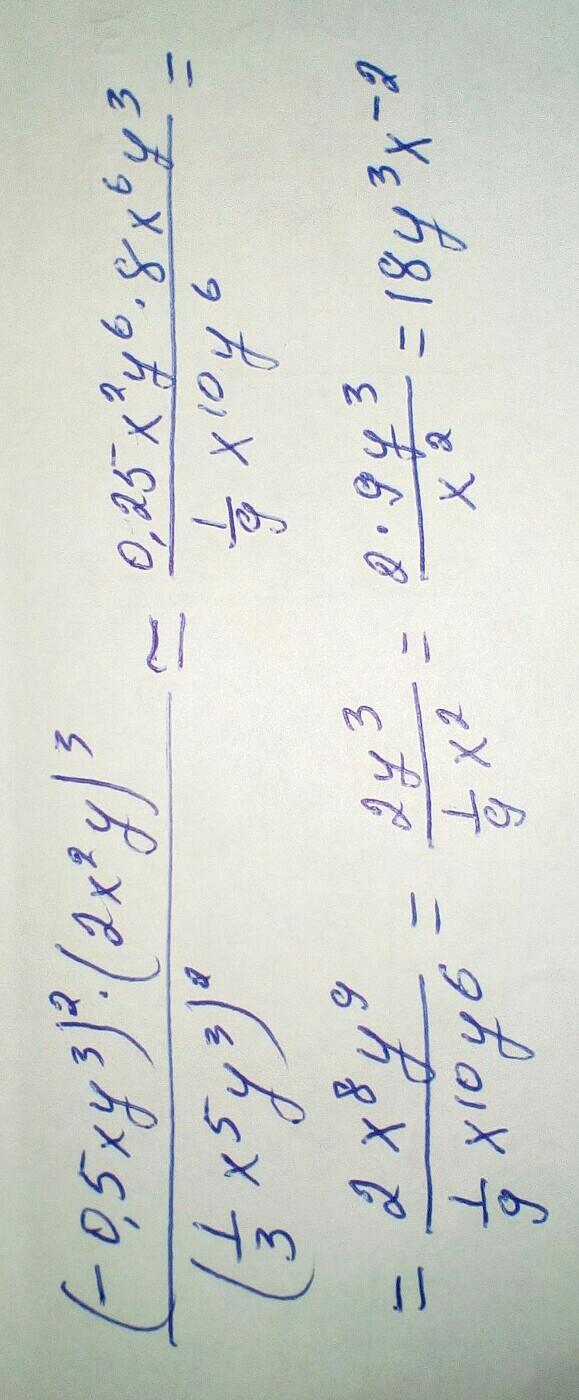 (-0,5xy³)²·(2x²y)³ / (1/3 x⁵y³)² = 0,25x²y⁶·8x⁶y³ / 1/9 x¹⁰y⁶ =
= 2x⁸y⁹ / 1/9 x¹⁰y⁶ = 2y³ / 1/9 x² = 2·9y³ / x² = 18y³x⁻²